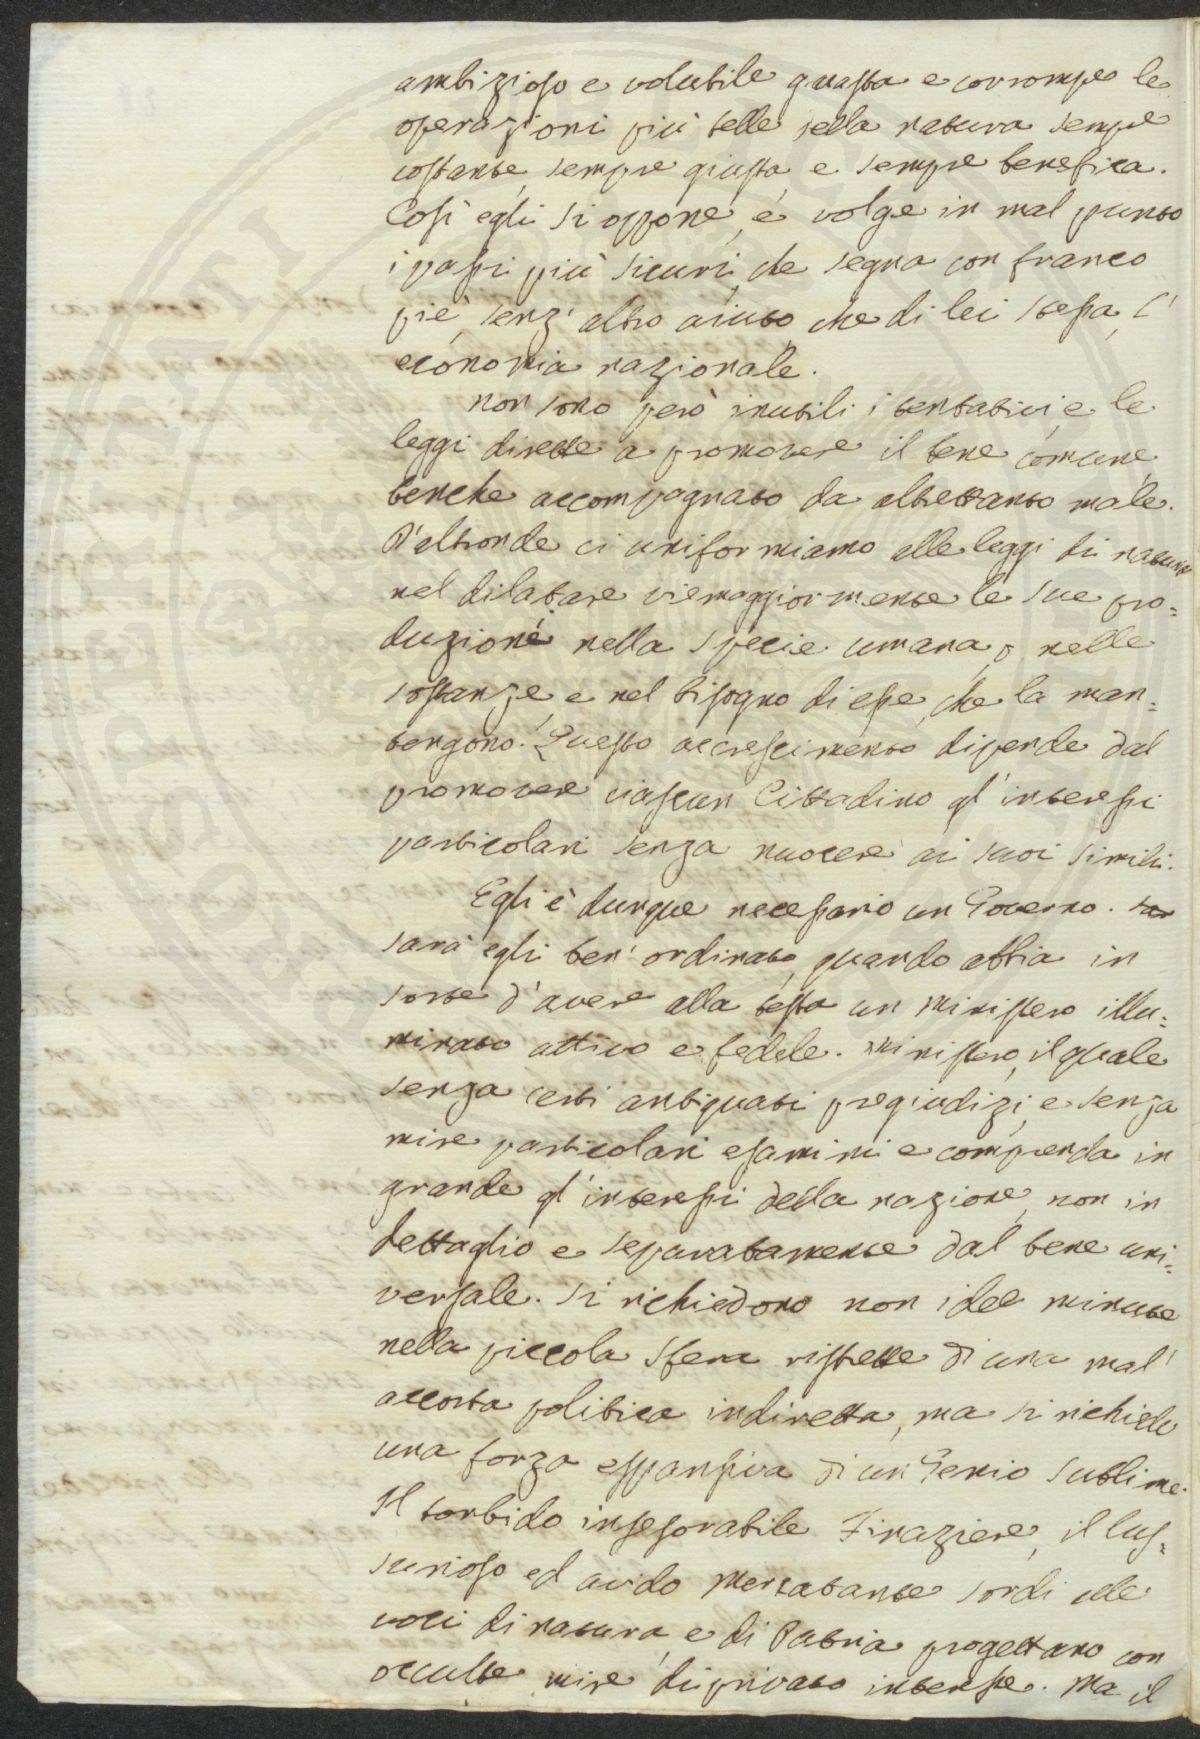 ambizioso e volubile guasta e corrompe le
operazioni più belle della natura sempre
costante, sempre giusta, e sempre benefica.
Così egli si oppone, e volge in mal punto
i passi più sicuri, che segna con franco
piè, senz' altro aiuto, che di lei stessa, l'
economia nazionale.
non sono però inutili i tentativi, e le
leggi dirette a promovere il bene comune,
benche accompagnato da altrettanto male.
D'altronde ci uniformiamo alle leggi di natura
nel dilatare viemaggiormente le sue pro=
duzioni nella specie umana, o nelle
sostanze e nel bisogno di esse, che la man=
tengono. Questo accrescimento dipende dal
promovere ciascun Cittadino gl'interessi
particolari senza nuocere ai suoi simili.
Egli è dunque necessario un Governo. sar
sarà egli ben' ordinato, quando abbia in
sorte d'avere alla testa un Ministero illu=
minato attivo e fedele. Ministero, il quale
senza certi antiquati pregiudizi, e senza
mire particolari esamini e comprenda in
grande gl'interessi della nazione, non in
dettaglio e separatamente dal bene uni=
versale. Si richiedono non idee minute
nella piccola sfera ristrette di una mal'
accorta politica indiretta, ma si richiede
una forza espansiva di un Genio sublime.
Il torbido insesorabile Finaziere, il lus=
surioso ed avido Mercatante sordi alle
voci di natura, e di Patria progettano con
occulte mire di privato interesse. Ma il